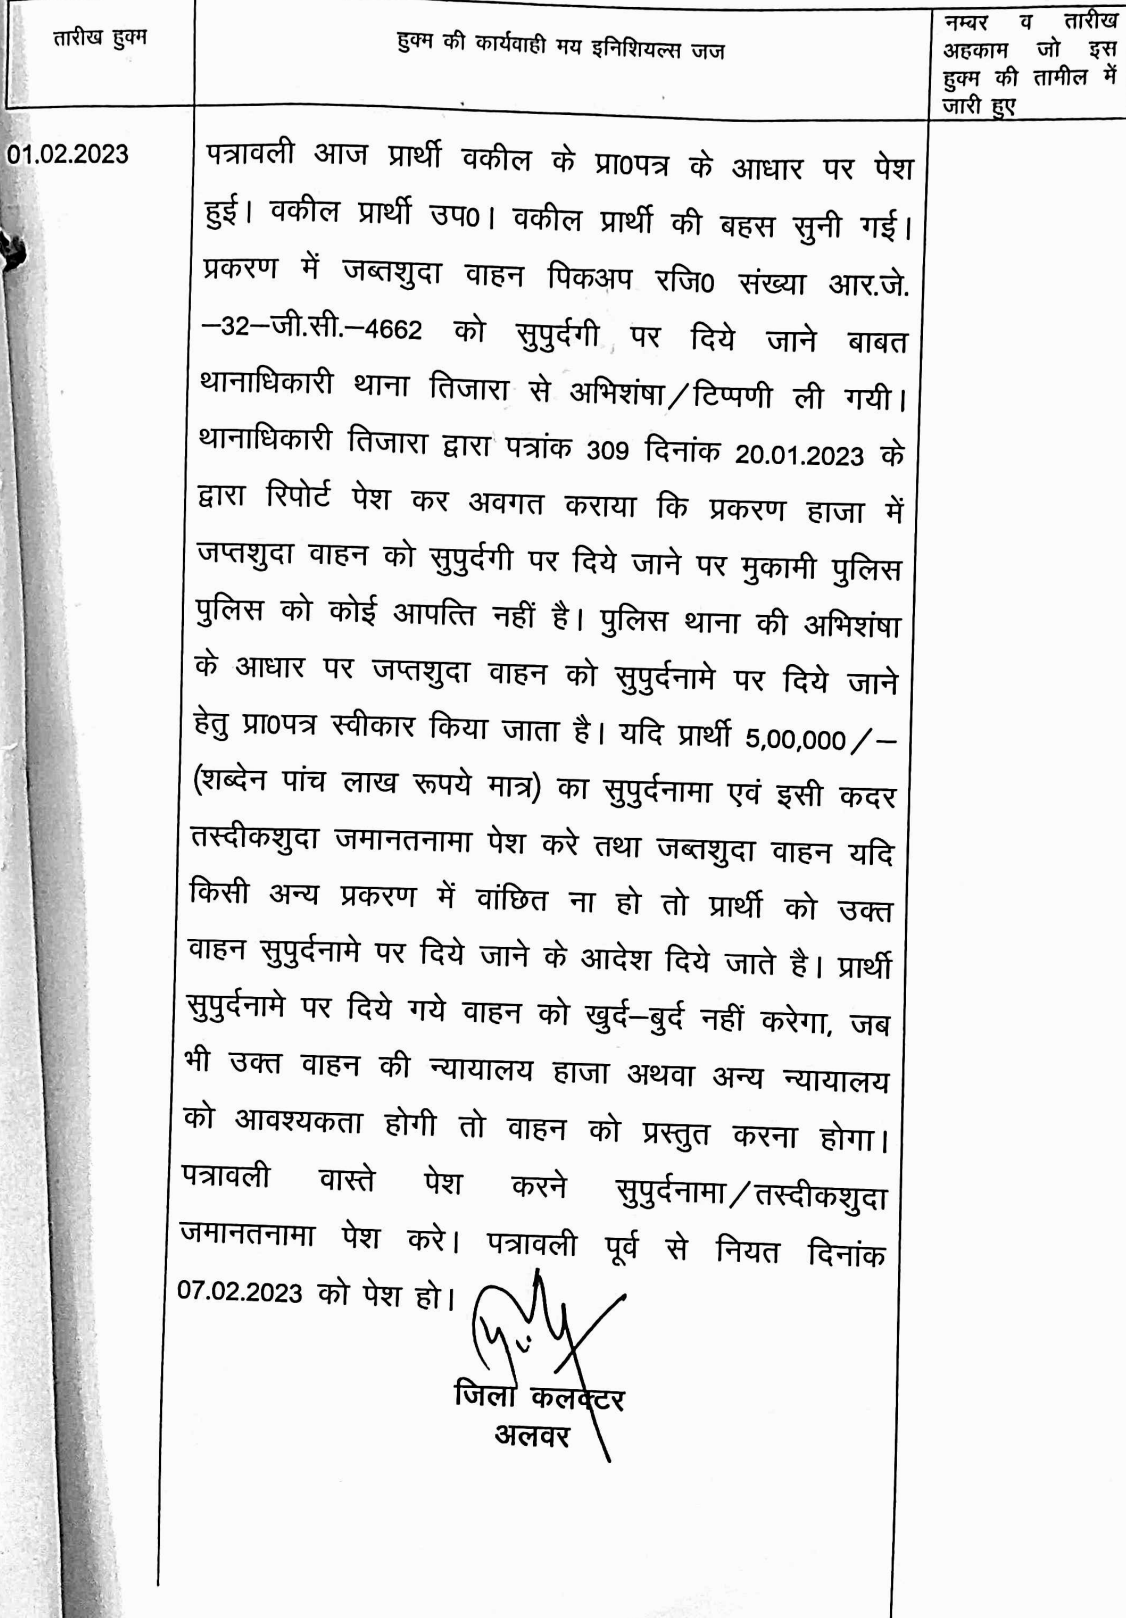 तारीख हुक्म
हुक्म की कार्यवाही मय इनिशियल्स जज
नम्बर व तारीख
अहकाम जो इस
हुक्म की तामील में
जारी हुए
01.02.2023
पत्रावली आज प्रार्थी वकील के प्रा0पत्र के आधार पर पेश
हुई। वकील प्रार्थी उप0। वकील प्रार्थी की बहस सुनी गई।
प्रकरण में जब्तशुदा वाहन पिकअप रजि0 संख्या आर.जे.
–32–जी.सी.–4662 को सुपुर्दगी पर दिये जाने बाबत
थानाधिकारी थाना तिजारा से अभिशंषा/टिप्पणी ली गयी।
थानाधिकारी तिजारा द्वारा पत्रांक 309 दिनांक 20.01.2023 के
द्वारा रिपोर्ट पेश कर अवगत कराया कि प्रकरण हाजा में
जप्तशुदा वाहन को सुपुर्दगी पर दिये जाने पर मुकामी पुलिस
पुलिस को कोई आपत्ति नहीं है। पुलिस थाना की अभिशंषा
के आधार पर जप्तशुदा वाहन को सुपुर्दनामे पर दिये जाने
हेतु प्रा0पत्र स्वीकार किया जाता है। यदि प्रार्थी 5,00,000/–
(शब्देन पांच लाख रूपये मात्र) का सुपुर्दनामा एवं इसी कदर
तस्दीकशुदा जमानतनामा पेश करे तथा जब्तशुदा वाहन यदि
किसी अन्य प्रकरण में वांछित ना हो तो प्रार्थी को उक्त
वाहन सुपुर्दनामे पर दिये जाने के आदेश दिये जाते है। प्रार्थी
सुपुर्दनामे पर दिये गये वाहन को खुर्द–बुर्द नहीं करेगा, जब
भी उक्त वाहन की न्यायालय हाजा अथवा अन्य न्यायालय
को आवश्यकता होगी तो वाहन को प्रस्तुत करना होगा।
पत्रावली वास्ते पेश करने सुपुर्दनामा/तस्दीकशुदा
जमानतनामा पेश करे। पत्रावली पूर्व से नियत दिनांक
07.02.2023 को पेश हो।
जिला कलक्टर
अलवर